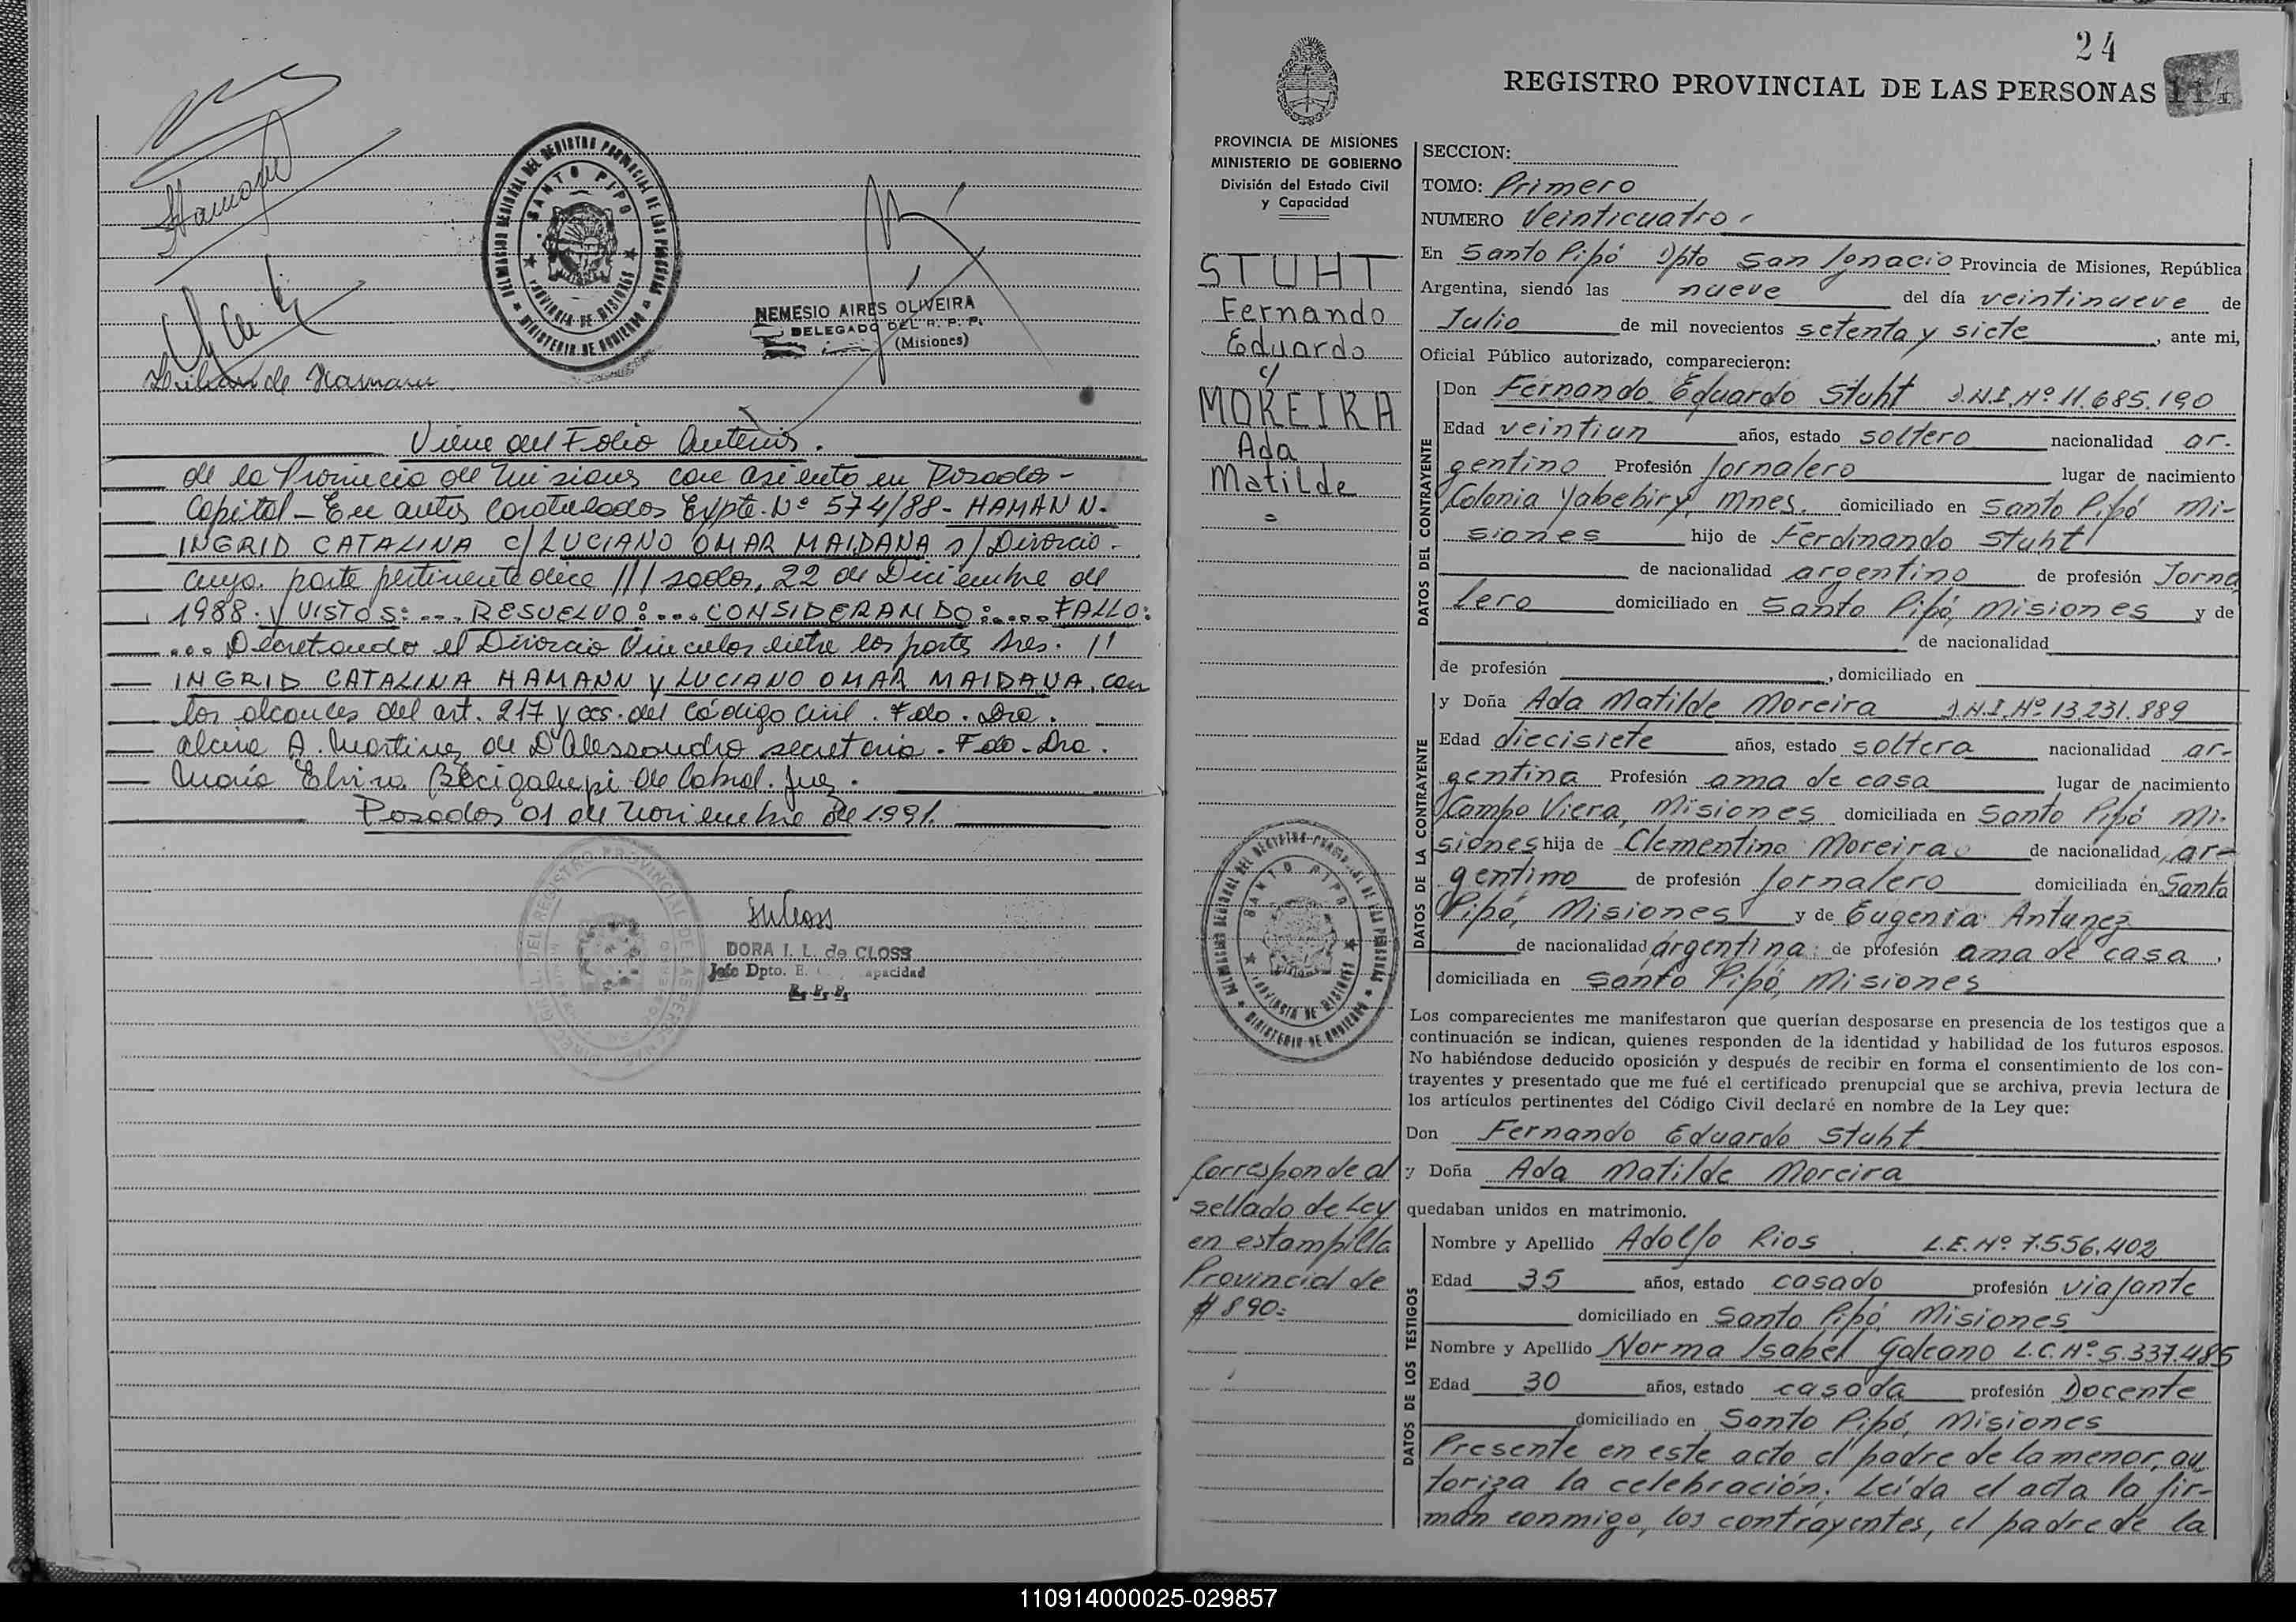 DELEGACION REGIONAL DEL REGISTRO PROVINCIAL DE LAS PERSONAS
SANTO PIPO
PROVINCIA DE MISIONES
MINISTERIO DE GOBIERNO
NEMESIO AIRES OLIVEIRA
DELEGADO DEL R. P. P.
(Misiones)
de Hamann
Viene del Folio Anterior.
de la Provincia de Misiones con asiento en Posadas-
Capital - En autos Caratulados Expte. Nº 574/88 - HAMANN.
INGRID CATALINA c/ LUCIANO OMAR MAIDANA s/ Divorcio-
cuya parte pertinente dice /// sadas, 22 de Diciembre de
1988. y VISTOS: ... RESUELVO: ... CONSIDERANDO: .... FALLO:
... Decretando el Divorcio Vincular entre las partes Sres. //
INGRID CATALINA HAMANN y LUCIANO OMAR MAIDANA, con
los alcances del art. 217 y ccs. del Código Civil. Fdo. Dra.
Alcira A. Martinez de D'Alessandro secretaria. Fdo. Dra.
María Elvira Bacigalupi de Cabral. Juez.
Posadas 01 de Noviembre de 1991.
DORA I. L. de CLOSS
Jefe Dpto. E. apacidad
R. P. P.
24
REGISTRO PROVINCIAL DE LAS PERSONAS 114
PROVINCIA DE MISIONES
MINISTERIO DE GOBIERNO
División del Estado Civil
y Capacidad
STUHT
Fernando
Eduardo
c/
MOREIRA
Ada
Matilde
=
DELEGACION REGIONAL DEL REGISTRO PROVINCIAL DE LAS PERSONAS
SANTO PIPO
PROVINCIA DE MISIONES
MINISTERIO DE GOBIERNO
Corresponde al
sellado de Ley
en estampilla
Provincial de
$ 890=
SECCION:
TOMO: Primero
NUMERO Veinticuatro
En Santo Pipó Dpto San Ignacio Provincia de Misiones, República
Argentina, siendo las nueve del día veintinueve de
Julio de mil novecientos setenta y siete, ante mi,
Oficial Público autorizado, comparecieron:
DATOS DEL CONTRAYENTE
Don Fernando Eduardo Stuht D.N.I. Nº 11.685.190
Edad veintiun años, estado soltero nacionalidad ar-
gentino Profesión Jornalero lugar de nacimiento
Colonia Yabebiry, Mnes. domiciliado en Santo Pipó Mi-
siones hijo de Ferdinando Stuht
de nacionalidad argentino de profesión Jorna
lero domiciliado en Santo Pipó, Misiones y de
de nacionalidad
de profesión , domiciliado en
DATOS DE LA CONTRAYENTE
y Doña Ada Matilde Moreira D.N.I. Nº 13.231.889
Edad diecisiete años, estado soltera nacionalidad ar-
gentina Profesión ama de casa lugar de nacimiento
Campo Viera, Misiones domiciliada en Santo Pipó Mi-
siones hija de Clementino Moreira de nacionalidad ar-
gentino de profesión Jornalero domiciliada en Santo
Pipó, Misiones y de Eugenia Antunez
de nacionalidad argentina de profesión ama de casa,
domiciliada en Santo Pipó, Misiones
Los comparecientes me manifestaron que querían desposarse en presencia de los testigos que a
continuación se indican, quienes responden de la identidad y habilidad de los futuros esposos.
No habiéndose deducido oposición y después de recibir en forma el consentimiento de los con-
trayentes y presentado que me fué el certificado prenupcial que se archiva, previa lectura de
los artículos pertinentes del Código Civil declaré en nombre de la Ley que:
Don Fernando Eduardo Stuht
y Doña Ada Matilde Moreira
quedaban unidos en matrimonio.
DATOS DE LOS TESTIGOS
Nombre y Apellido Adolfo Rios L.E. Nº 7.556.402
Edad 35 años, estado casado profesión viajante
domiciliado en Santo Pipó, Misiones
Nombre y Apellido Norma Isabel Galeano L.C. Nº 5.337.485
Edad 30 años, estado casada profesión Docente
domiciliado en Santo Pipó, Misiones
Presente en este acto el padre de la menor, au
toriza la celebración. Leída el acta la fir-
man conmigo, los contrayentes, el padre de la
110914000025-029857